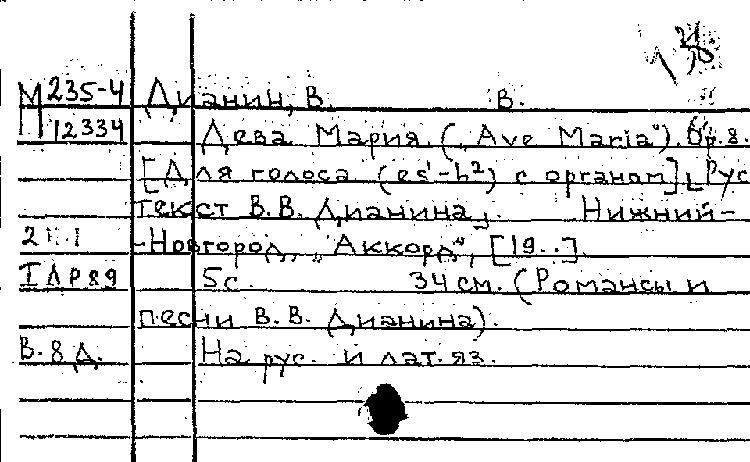 М 235-4 Дианин, В. В.
12334 Дева Мария. („Ave Maria"). Ор. 8.
[Для голоса (es¹-h²) с органом]. [Рус
текст В.В. Дианина]. Нижний-
-Новгород, „Аккорд", [19..].
I АР89 5с. 34 см. (Романсы и
песни В.В. Дианина).
В. 8 Д. На рус. и лат. яз.